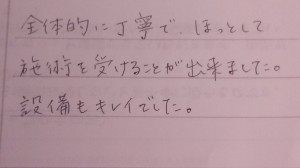 全体的に丁寧で、ほっとして
施術を受けることが出来ました。
設備もキレイでした。